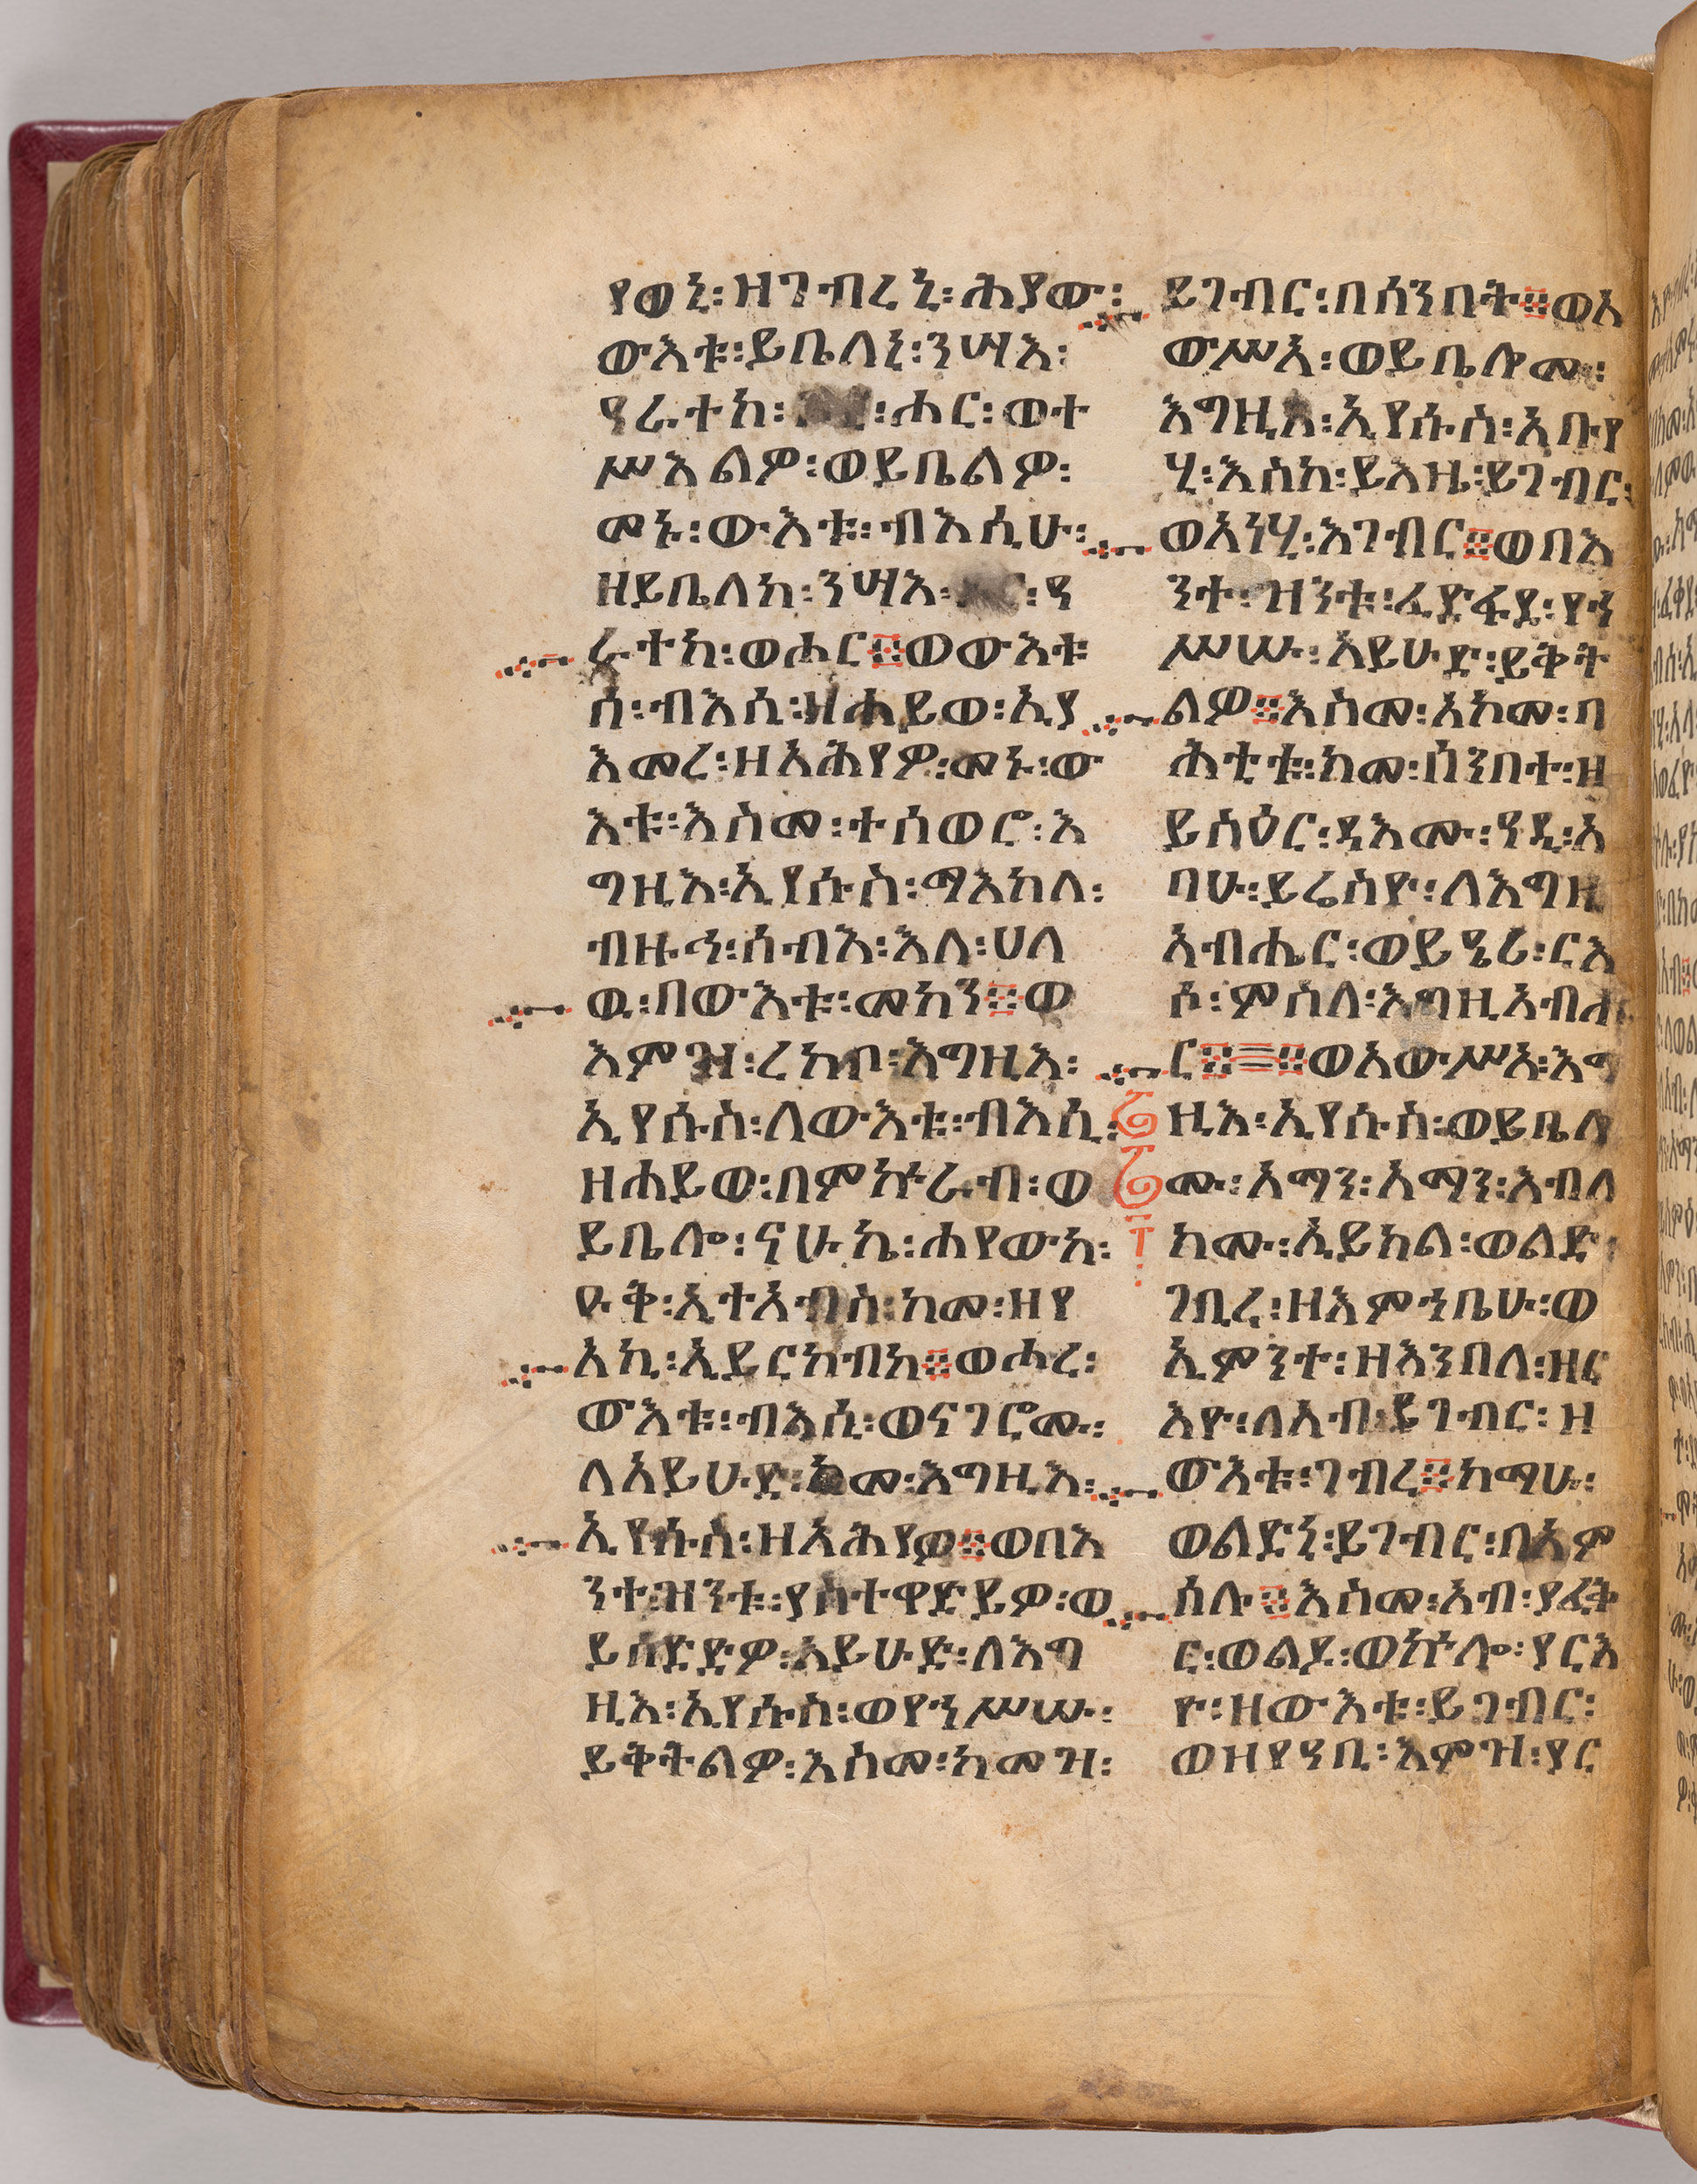 የወኒ፡ዘገብረኒ፡ሕያው፡
ውእቱ፡ይቤለኒ፡ንሣእ፡
ዓራተከ፡ ፡ሐር፡ወተ
ሥእልዎ፡ወይቤልዎ፡
መኑ፡ውእቱ፡ብእሲሁ፡
ዘይቤለከ፡ንሣእ፡ ፡ዓ
ራተከ፡ወሐር፨ወውእቱ
ሰ፡ብእሲ፡ዘሐይወ፡ኢያ
እመረ፡ዘአሕየዎ፡መኑ፡ው
እቱ፡እስመ፡ተሰወሮ፡እ
ግዚእ፡ኢየሱስ፡ማእከለ፡
ብዙኅ፡ሰብእ፡እለ፡ሀለ
ዉ፡በውእቱ፡መካን፨ወ
እምዝ፡ረከቦ፡እግዚእ፡
ኢየሱስ፡ለውእቱ፡ብእሲ፡
ዘሐይወ፡በምኵራብ፡ወ
ይቤሎ፡ናሁኬ፡ሐየውከ፡
ዑቅ፡ኢተአብስ፡ከመ፡ዘየ
አኪ፡ኢይርከብከ፨ወሖረ፡
ውእቱ፡ብእሲ፡ወናገሮሙ፡
ለአይሁድ፡ከመ፡እግዚእ፡
ኢየሱስ፡ዘአሕየወ፨ወበእ
ንተ፡ዝንቱ፡ያስተዋድይዎ፡ወ
ይሰድድዎ፡አይሁድ፡ለእግ
ዚእ፡ኢየሱስ፡ወየኅሥሡ፡
ይቅትልዎ፡እስመ፡ከመዝ፡
ይገብር፡በሰንበት፨ወአ
ውሥአ፡ወይቤሎሙ፡
እግዚእ፡ኢየሱስ፡አቡየ
ሂ፡እስከ፡ይእዜ፡ይገብር፡
ወአነሂ፡እገብር፨ወበእ
ንተ፡ዝንቱ፡ፈድፋደ፡የኅ
ሥሡ፡አይሁድ፡ይቅት
ልዎ፨እስመ፡አኮመ፡ባ
ሕቲቱ፡ከመ፡ሰንበተ፡ዘ
ይስዕር፡ዳእሙ፡ዓዲ፡አ
ባሁ፡ይሬስዮ፡ለእግዚ
አብሔር፡ወይዔሪ፡ርእ
ሶ፡ምስለ፡እግዚአብሔ
ር፨፨ወአውሥአ፡እግ
ዚእ፡ኢየሱስ፡ወይቤሎ
ሙ፡አማን፡አማን፡እብለ
ክሙ፡ኢይክል፡ወልድ፡
ገቢረ፡ዘእምኅቤሁ፡ወ
ኢምንተ፡ዘእንበለ፡ዘር
እዮ፡ለአብ፡ይገብር፡ዘ
ውእቱ፡ገብረ፨ከማሁ፡
ወልድኒ፡ይገብር፡በአም
ሰሉ፨እስመ፡አብ፡ያፈቅ
ር፡ወልዶ፡ወኵሎ፡ያርእ
ዮ፡ዘውእቱ፡ይገብር፡
ወዘየዓቢ፡እምዝ፡ያር